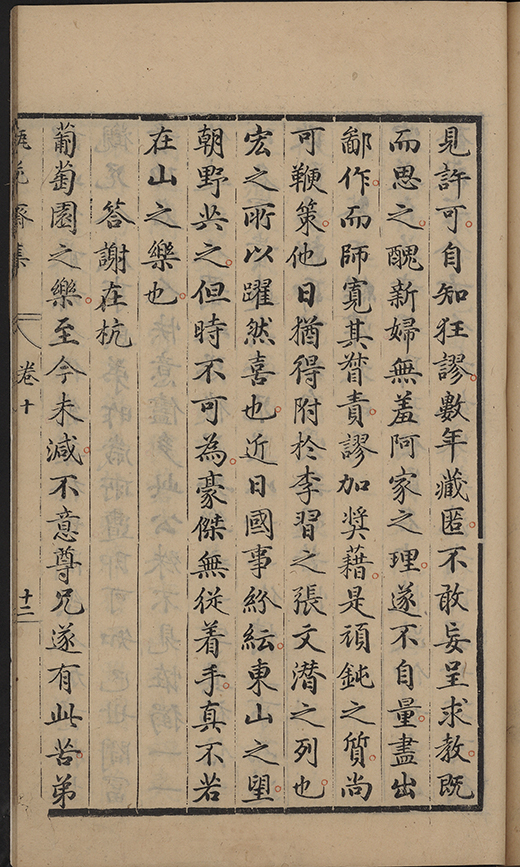 見許可自知狂謬數年藏匿不敢妄呈求教既
而思之醜新婦無羞阿家之理遂不自量盡出
鄙作而師寬其督責謬加奖藉是頑鈍之質尚
可鞭策他日猶得附於李習之張文潛之列也
宏之所以躍然喜也近日國事紛紜東山之望
朝野共之但時不可為豪傑無從着手真不若
在山之樂也
答謝在杭
葡萄園之樂至今未減不意尊兄遂有此苦弟
集
卷十
十二